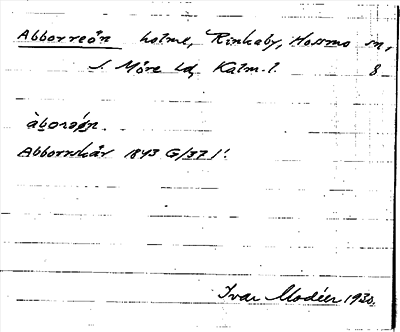 Abborreån holme, Rinkaby, Hossmo sn,
S. Möre hd, Kalm. l. 8
Abborrskär 1843 G/37/1.
Ivar Modéer 1930.